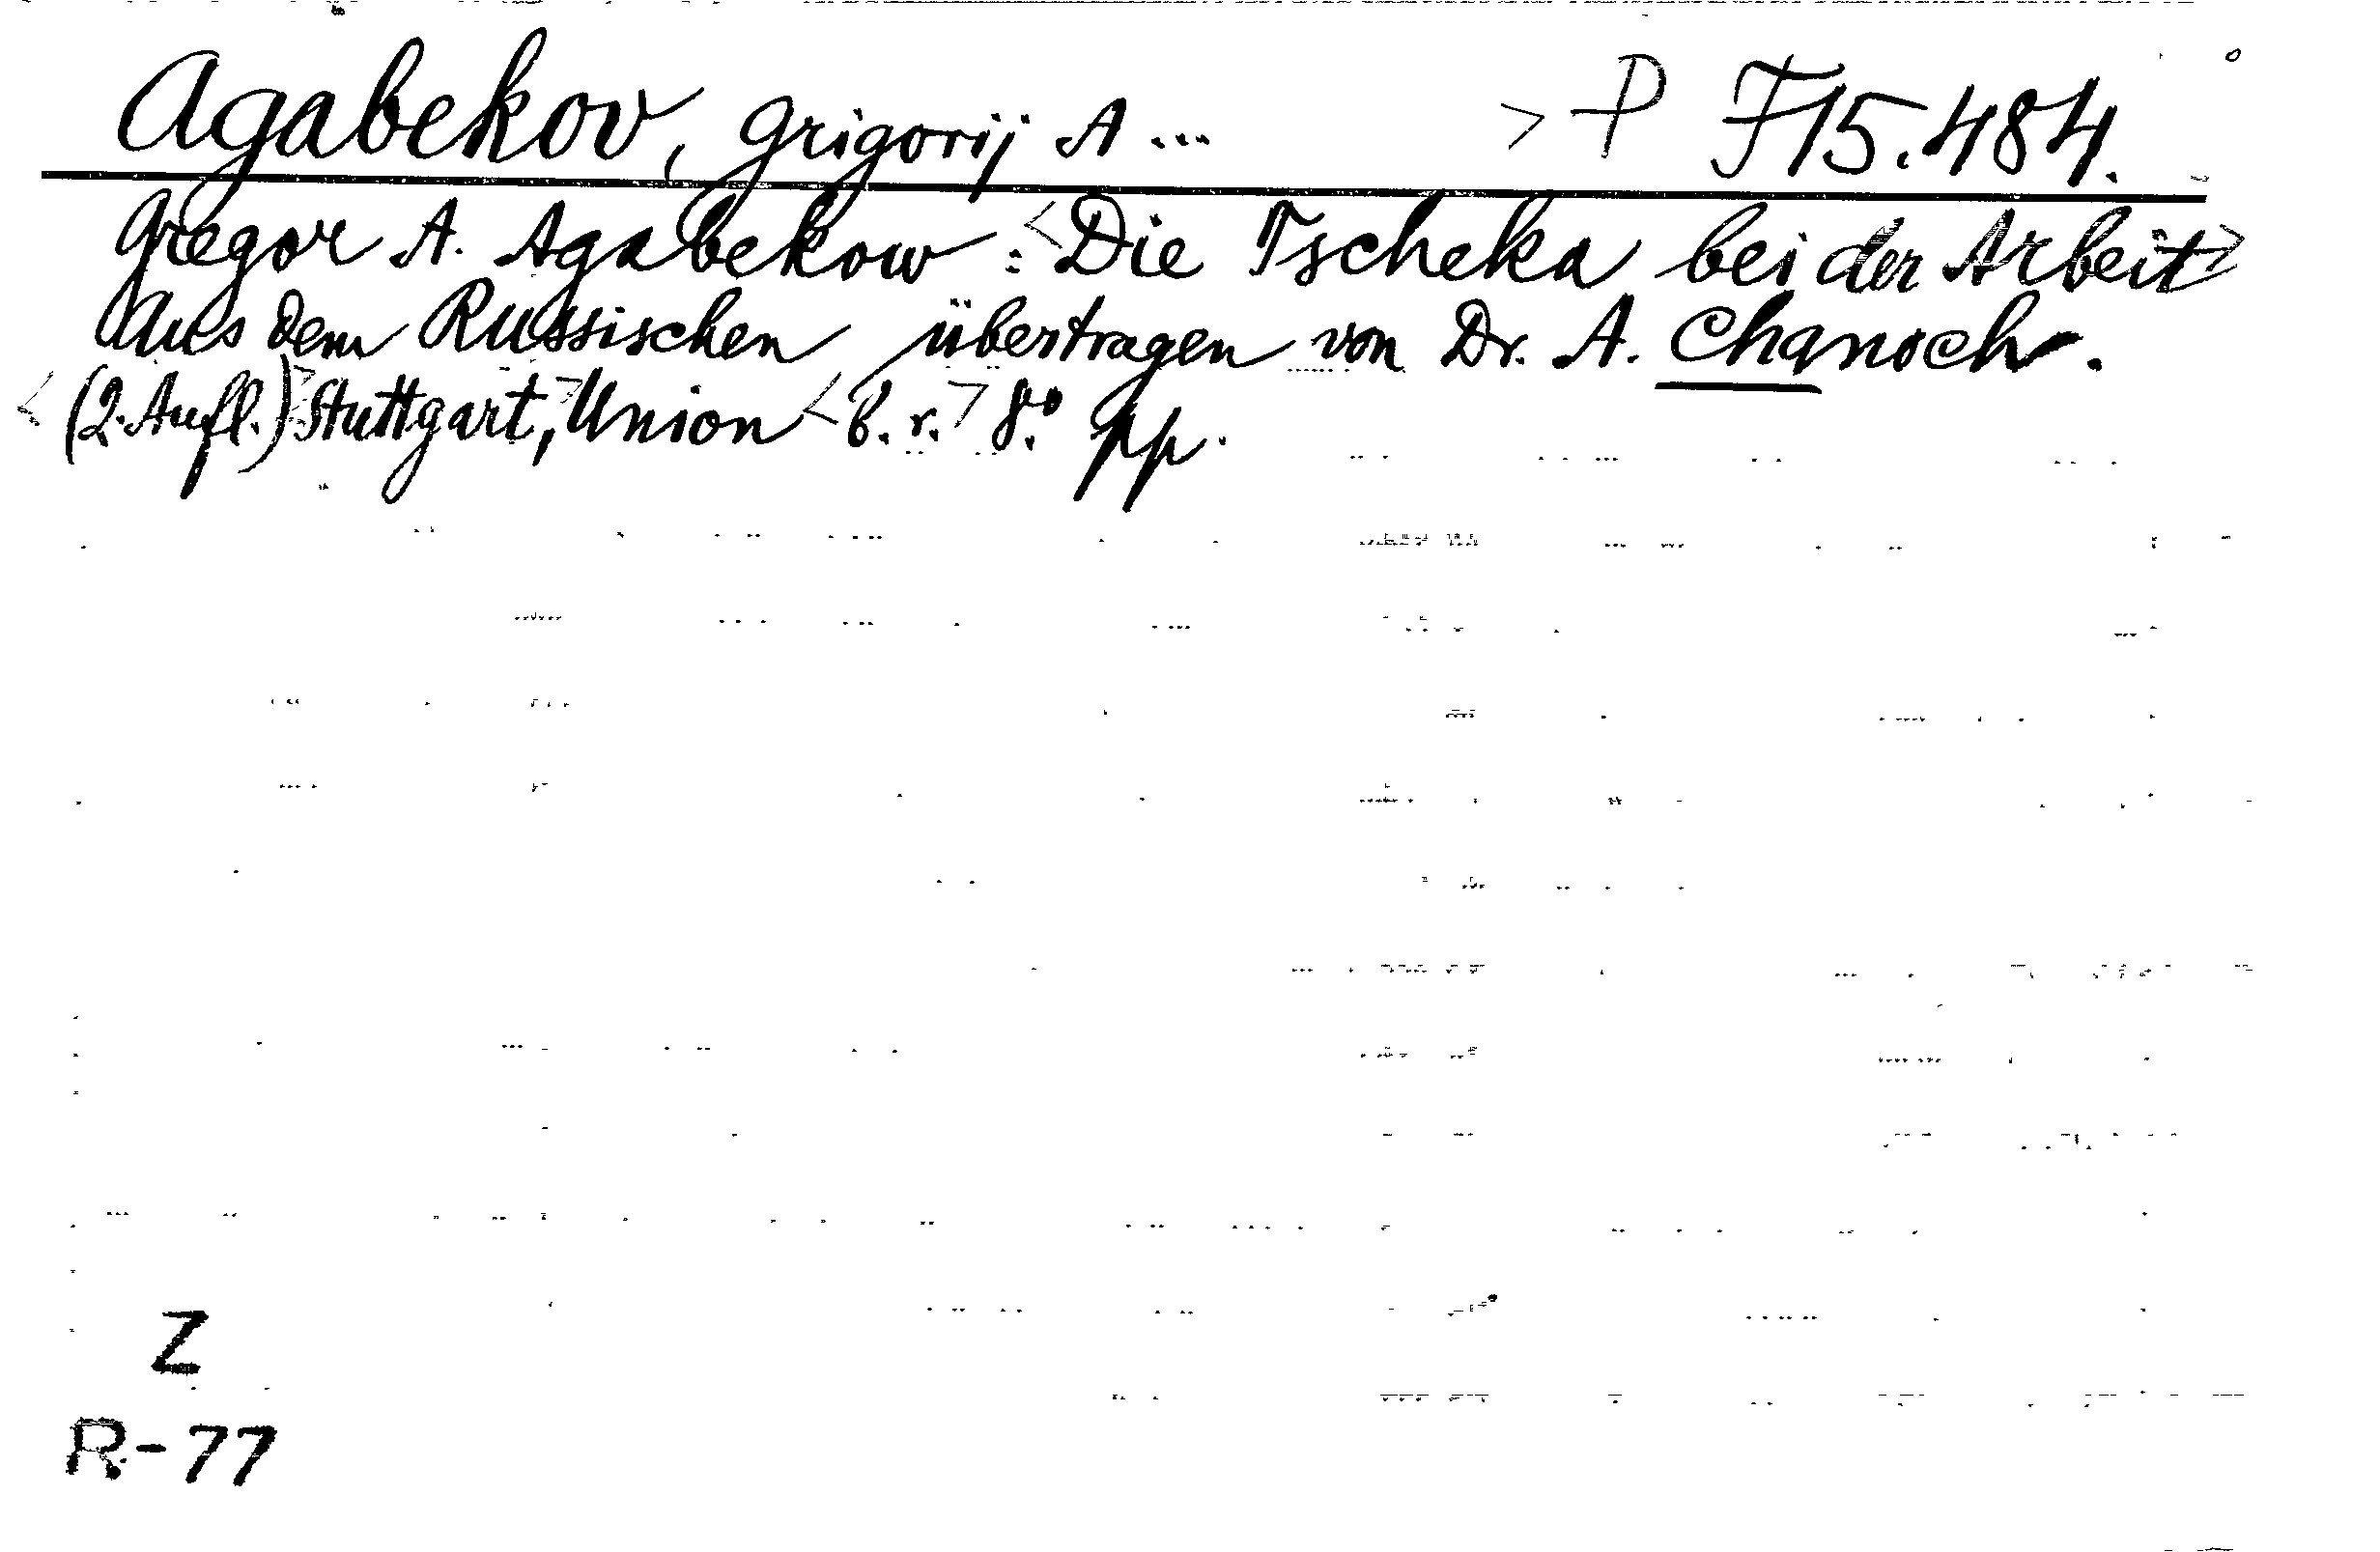 Agabekov, Grigorij A... > P F15.484.
Gregor A. Agabekow : <Die Tscheka bei der Arbeit>
Aus dem Russischen übertragen von Dr. A. Chanoch.
<(2. Aufl.)> Stuttgart, Union <B. r.> 8.° pp.
Z
R-77